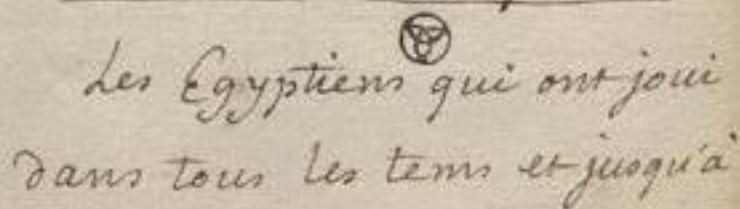 Les Egyptiens qui ont joui
dans tous les tems et jusqu'à